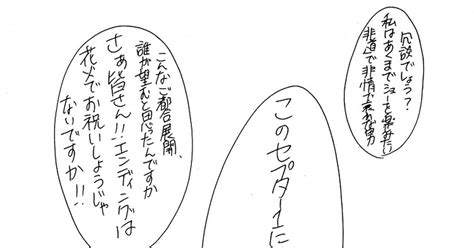 冗談でしょう?
私はあくまでショーを楽みたい
非道で非情で哀れな男
このセプターに
こんなご都合展開、
誰が望むと思ったんですか
さぁ皆さん!!エンディングは
花火でお祝いしようじゃ
ないですか!!